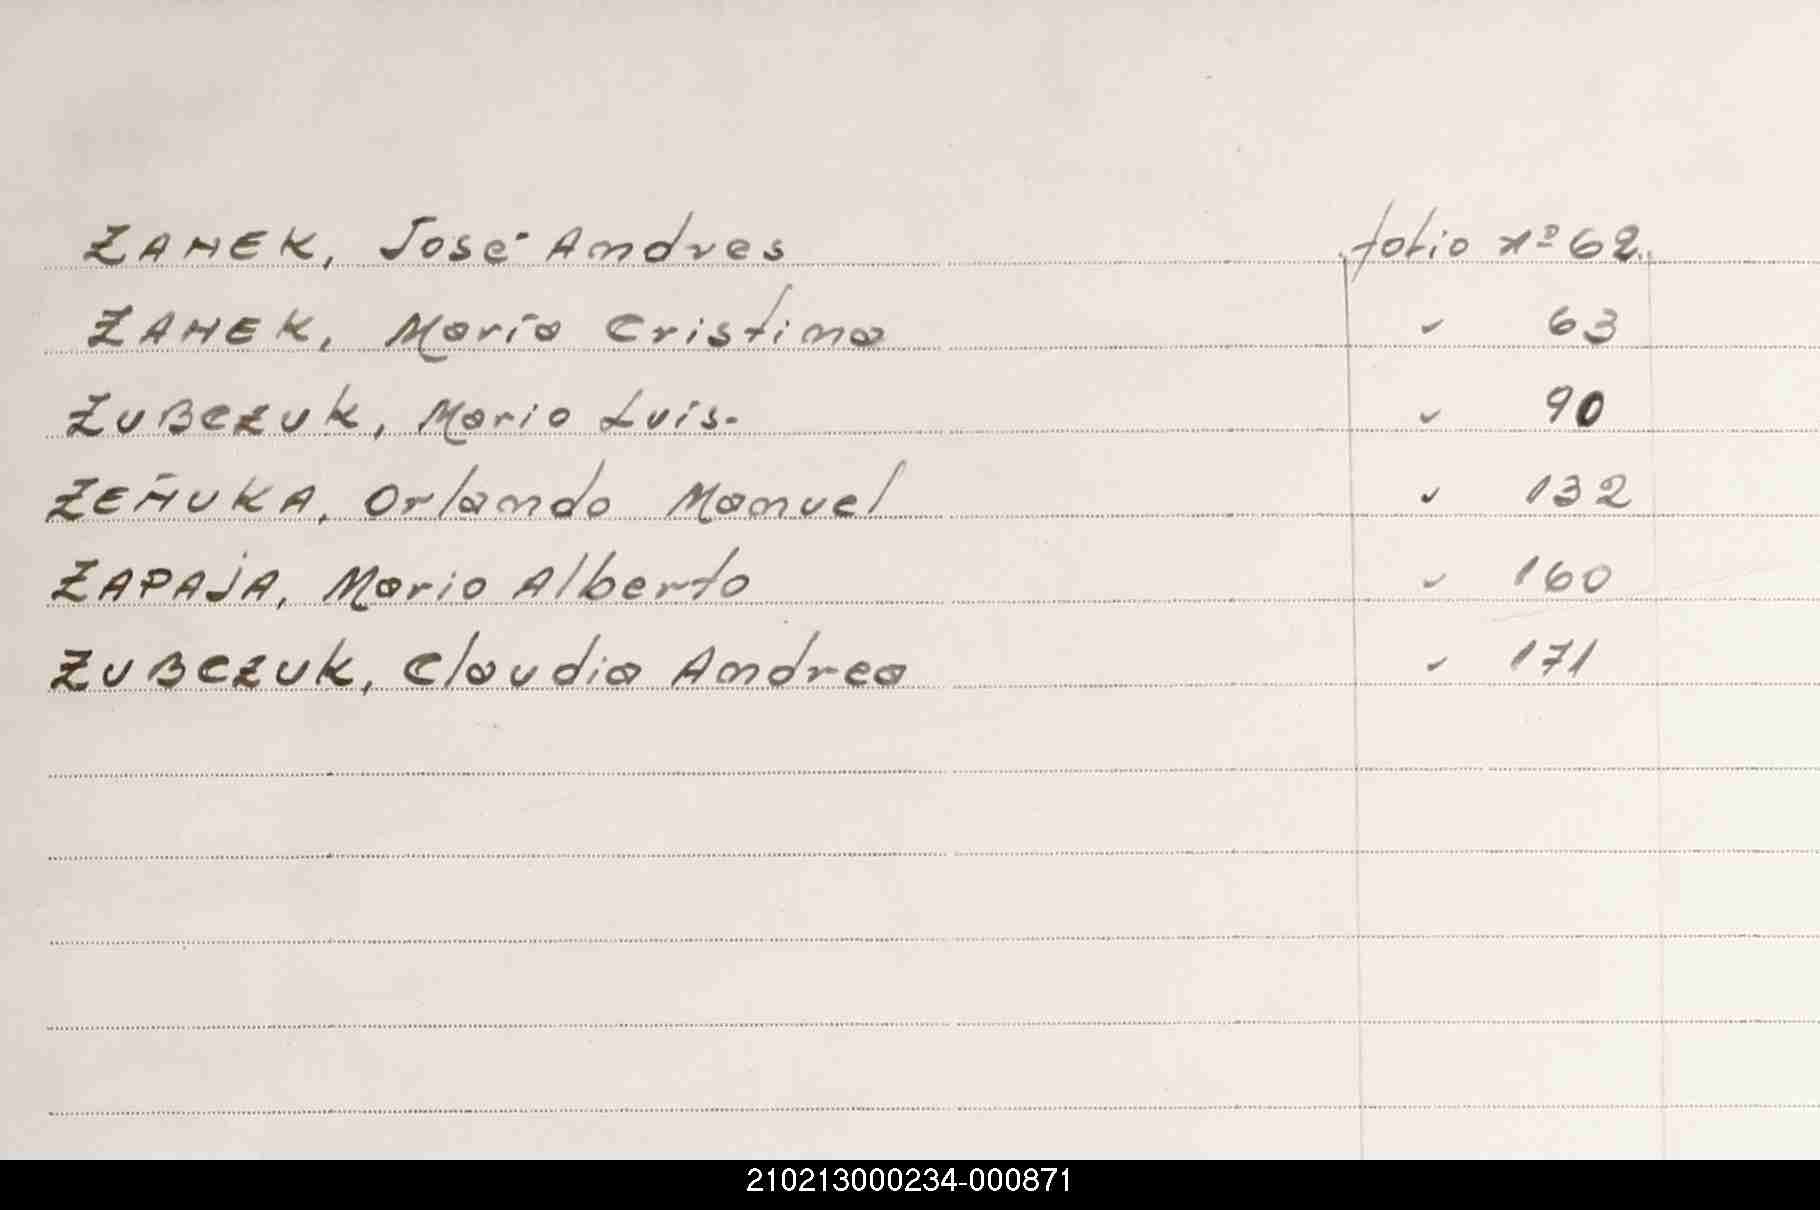 ZANEK, José Andres folio nº 62.
ZANEK, María Cristina " 63
ZUBCZUK, Mario Luis. " 90
ZEÑUKA, Orlando Manuel " 132
ZAPAJA, Mario Alberto " 160
ZUBCZUK, Claudia Andrea " 171
210213000234-000871